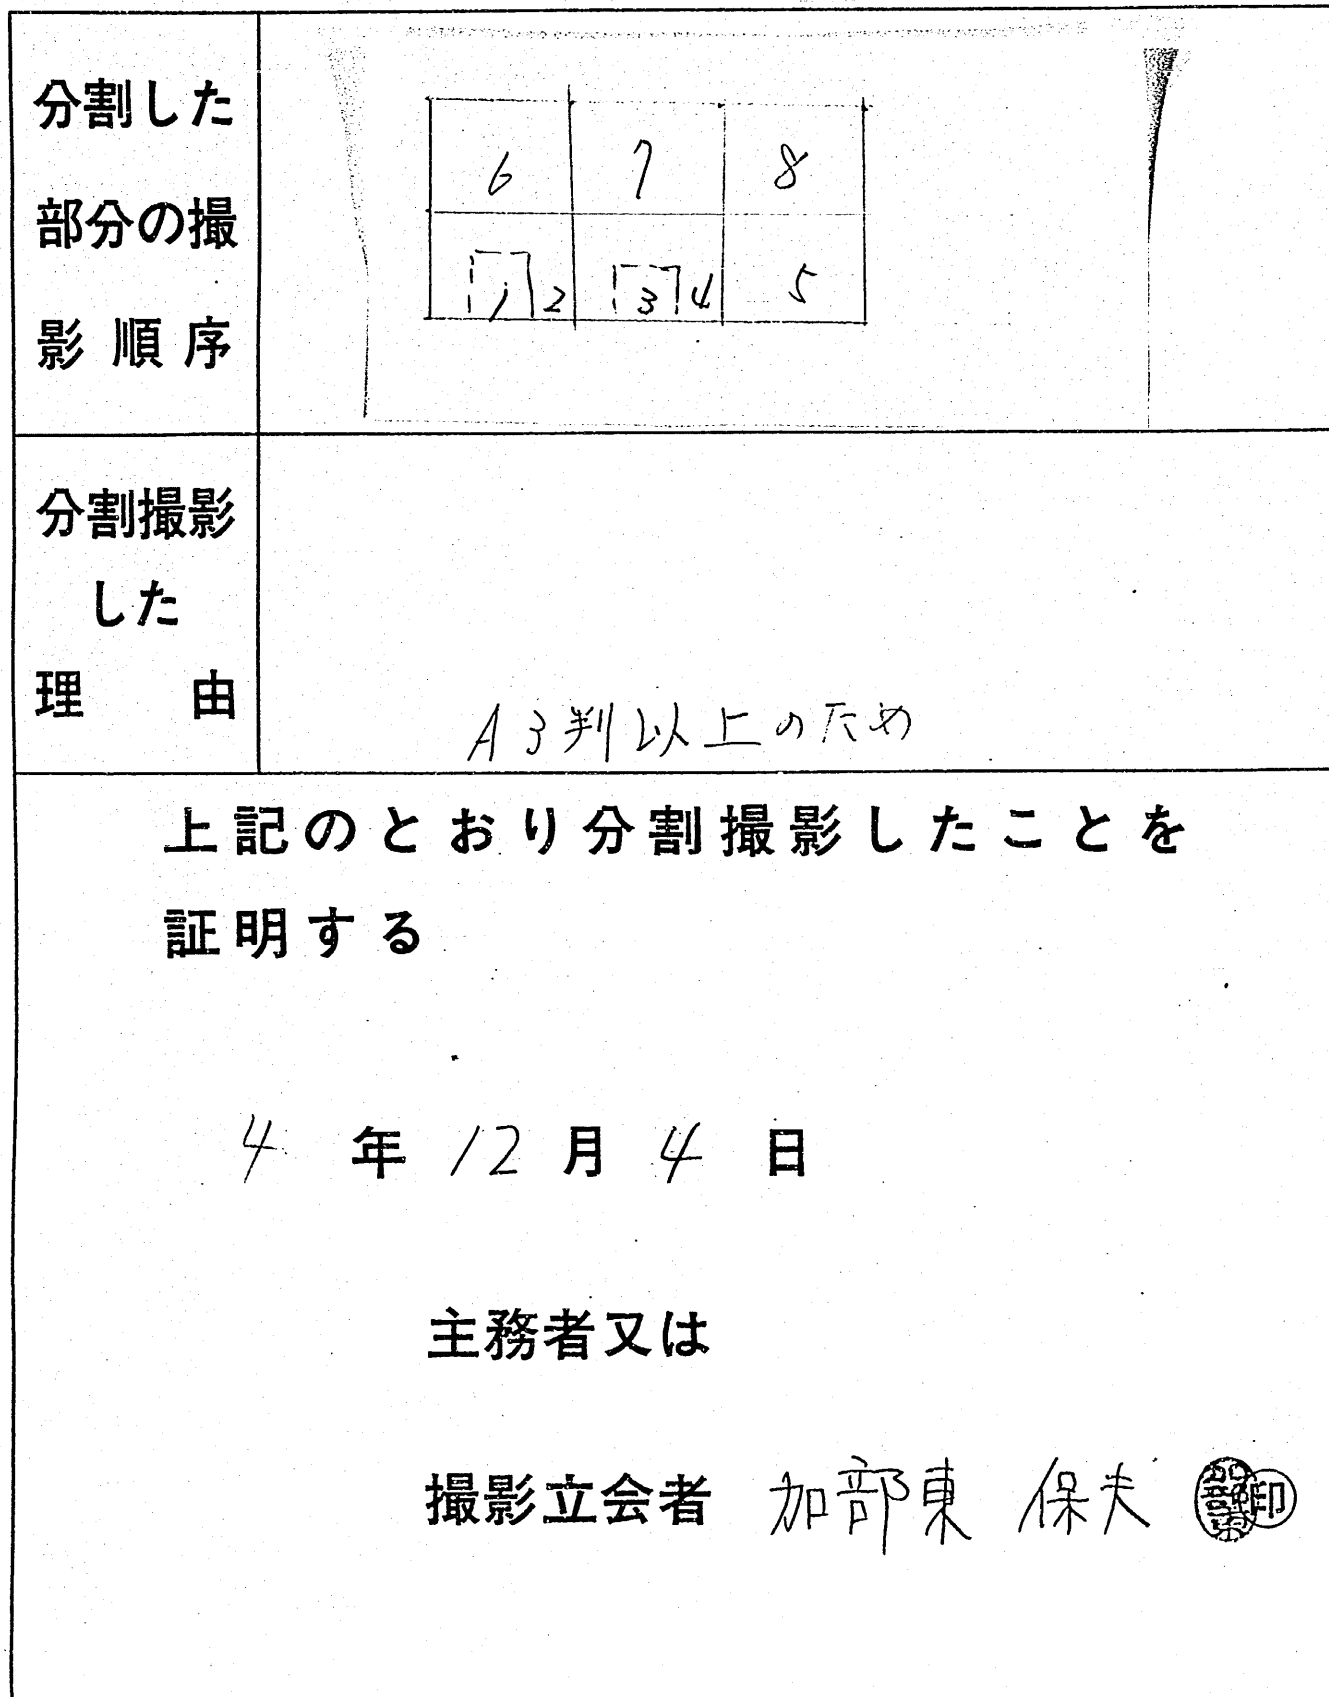 分割した
部分の撮
影順序
6 7 8
1 2 3 4 5
分割撮影
した
理由
A3判以上のため
上記のとおり分割撮影したことを
証明する
4年12月4日
主務者又は
撮影立会者 加部東 保夫 加部東 印